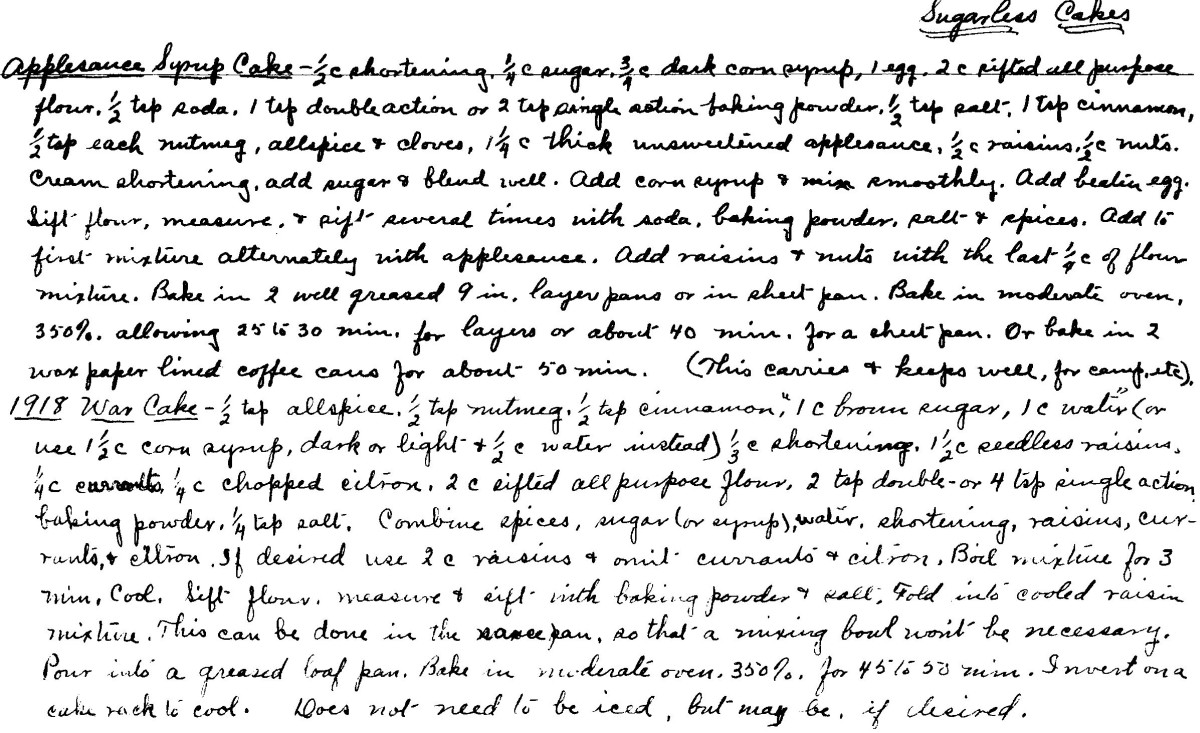 Sugarless Cakes
Applesauce Syrup Cake - ½ c shortening, ¼ c sugar, ¾ c dark corn syrup, 1 egg, 2 c sifted all purpose
flour, ½ tsp soda, 1 tsp double action or 2 tsp single action baking powder, ½ tsp salt, 1 tsp cinnamon,
½ tsp each nutmeg, allspice & cloves, 1¼ c thick unsweetened applesauce, ½ c raisins, ½ c nuts.
Cream shortening, add sugar & blend well. Add corn syrup & mix smoothly. Add beaten egg.
Sift flour, measure, & sift several times with soda, baking powder, salt & spices. Add to
first mixture alternately with applesauce. Add raisins & nuts with the last ¼ c of flour
mixture. Bake in 2 well greased 9 in. layer pans or in sheet pan. Bake in moderate oven,
350%. allowing 25 to 30 min. for layers or about 40 min. for a sheet pan. Or bake in 2
wax paper lined coffee cans for about 50 min. (This carries & keeps well, for camp, etc).
1918 War Cake - ½ tsp allspice, ½ tsp nutmeg, ½ tsp cinnamon, "1 c brown sugar, 1 c water" (or
use 1½ c corn syrup, dark or light & ½ c water instead) ⅓ c shortening, 1½ c seedless raisins,
¼ c currants, ¼ c chopped citron, 2 c sifted all purpose flour, 2 tsp double- or 4 tsp single action
baking powder, ¼ tsp salt. Combine spices, sugar (or syrup), water, shortening, raisins, cur-
rants, & citron. If desired use 2 c raisins & omit currants & citron. Boil mixture for 3
min. Cool. Sift flour, measure & sift with baking powder & salt. Fold into cooled raisin
mixture. This can be done in the sauce pan, so that a mixing bowl won't be necessary.
Pour into a greased loaf pan. Bake in moderate oven. 350%. for 45 to 50 min. Invert on a
cake rack to cool. Does not need to be iced, but may be, if desired.